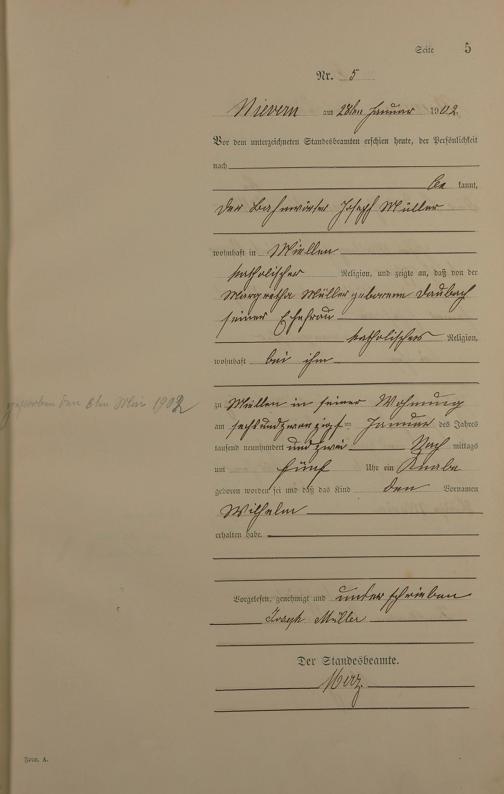 Seite 5
Nr. 5
Nievern am 28ten Januar 1902.
Vor dem unterzeichneten Standesbeamten erschien heute, der Persönlichkeit
nach
be kannt,
der Bahnwärter Joseph Müller
wohnhaft in Miellen
katholischer Religion, und zeigte an, daß von der
Margretha Müller geborene Daubach
seiner Ehefrau
katholischer Religion,
wohnhaft bei ihm
gestorben den 8ten Mai 1902
zu Miellen in seiner Wohnung
am sechsundzwanzigsten Januar des Jahres
tausend neunhundert und zwei Nach mittags
um fünf Uhr ein Knabe
geboren worden sei und daß das Kind den Vornamen
Wilhelm
erhalten habe.
Vorgelesen, genehmigt und unterschrieben
Joseph Müller
Der Standesbeamte.
Merz.
Form. A.